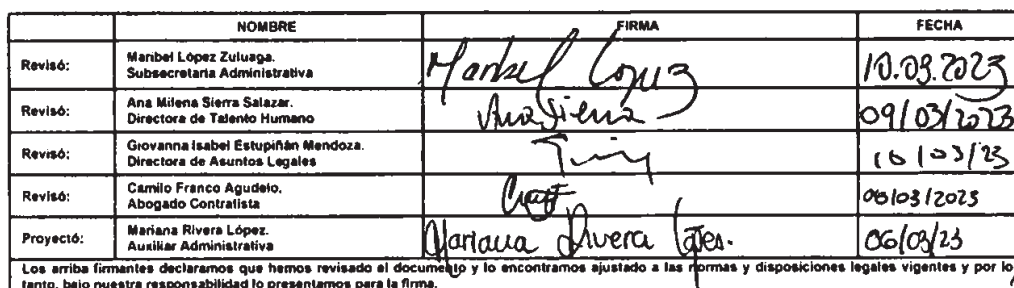 NOMBRE FIRMA FECHA
Revisó: Maribel López Zuluaga.
Subsecretaria Administrativa
Maribel Lopez 10.03.2023
Revisó: Ana Milena Sierra Salazar.
Directora de Talento Humano
Ana Sierra 09/03/2023
Revisó: Giovanna Isabel Estupiñán Mendoza.
Directora de Asuntos Legales
10/03/23
Revisó: Camilo Franco Agudelo.
Abogado Contratista
06/03/2023
Proyectó: Mariana Rivera López.
Auxiliar Administrativa
Mariana Rivera López. 06/03/23
Los arriba firmantes declaramos que hemos revisado el documento y lo encontramos ajustado a las normas y disposiciones legales vigentes y por lo
tanto, bajo nuestra responsabilidad lo presentamos para la firma.